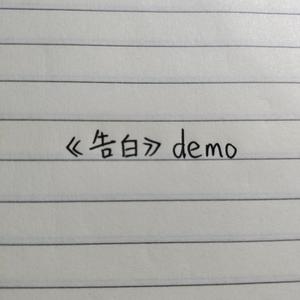 《告白》demo